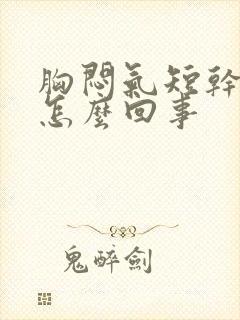 胸悶氣短幹
怎麼回事
鬼醉劍